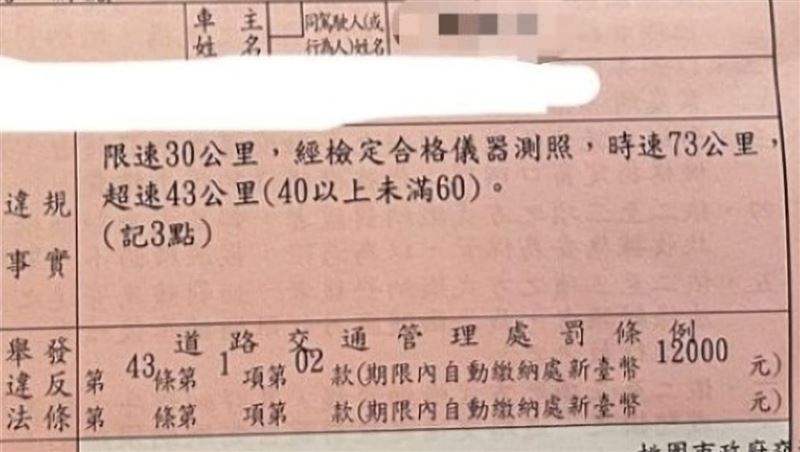 車主姓名
同駕駛人(或行為人)姓名
違規事實
限速30公里,經檢定合格儀器測照,時速73公里,
超速43公里(40以上未滿60)。
(記3點)
舉發違反法條
道路交通管理處罰條例
第43條第1項第02款(期限內自動繳納處新臺幣12000元)
第 條第 項第 款(期限內自動繳納處新臺幣 元)
桃園市政府交